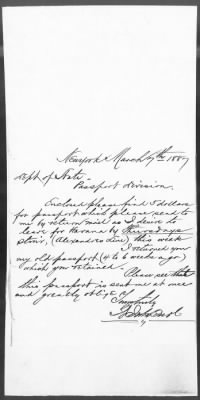 New York March 7th 1887
Dept of State
Passport Division.
Enclosed please find 5 dollars
for passport which please send to
me by return mail as I desire to
leave for Havana by Thursdays
stmr, (Alexandres Line) this week
I returned you
my old passport (4 to 6 weeks ago)
which you retained.
Please see that
this passport is sent me at once
and greatly oblige Yours truly